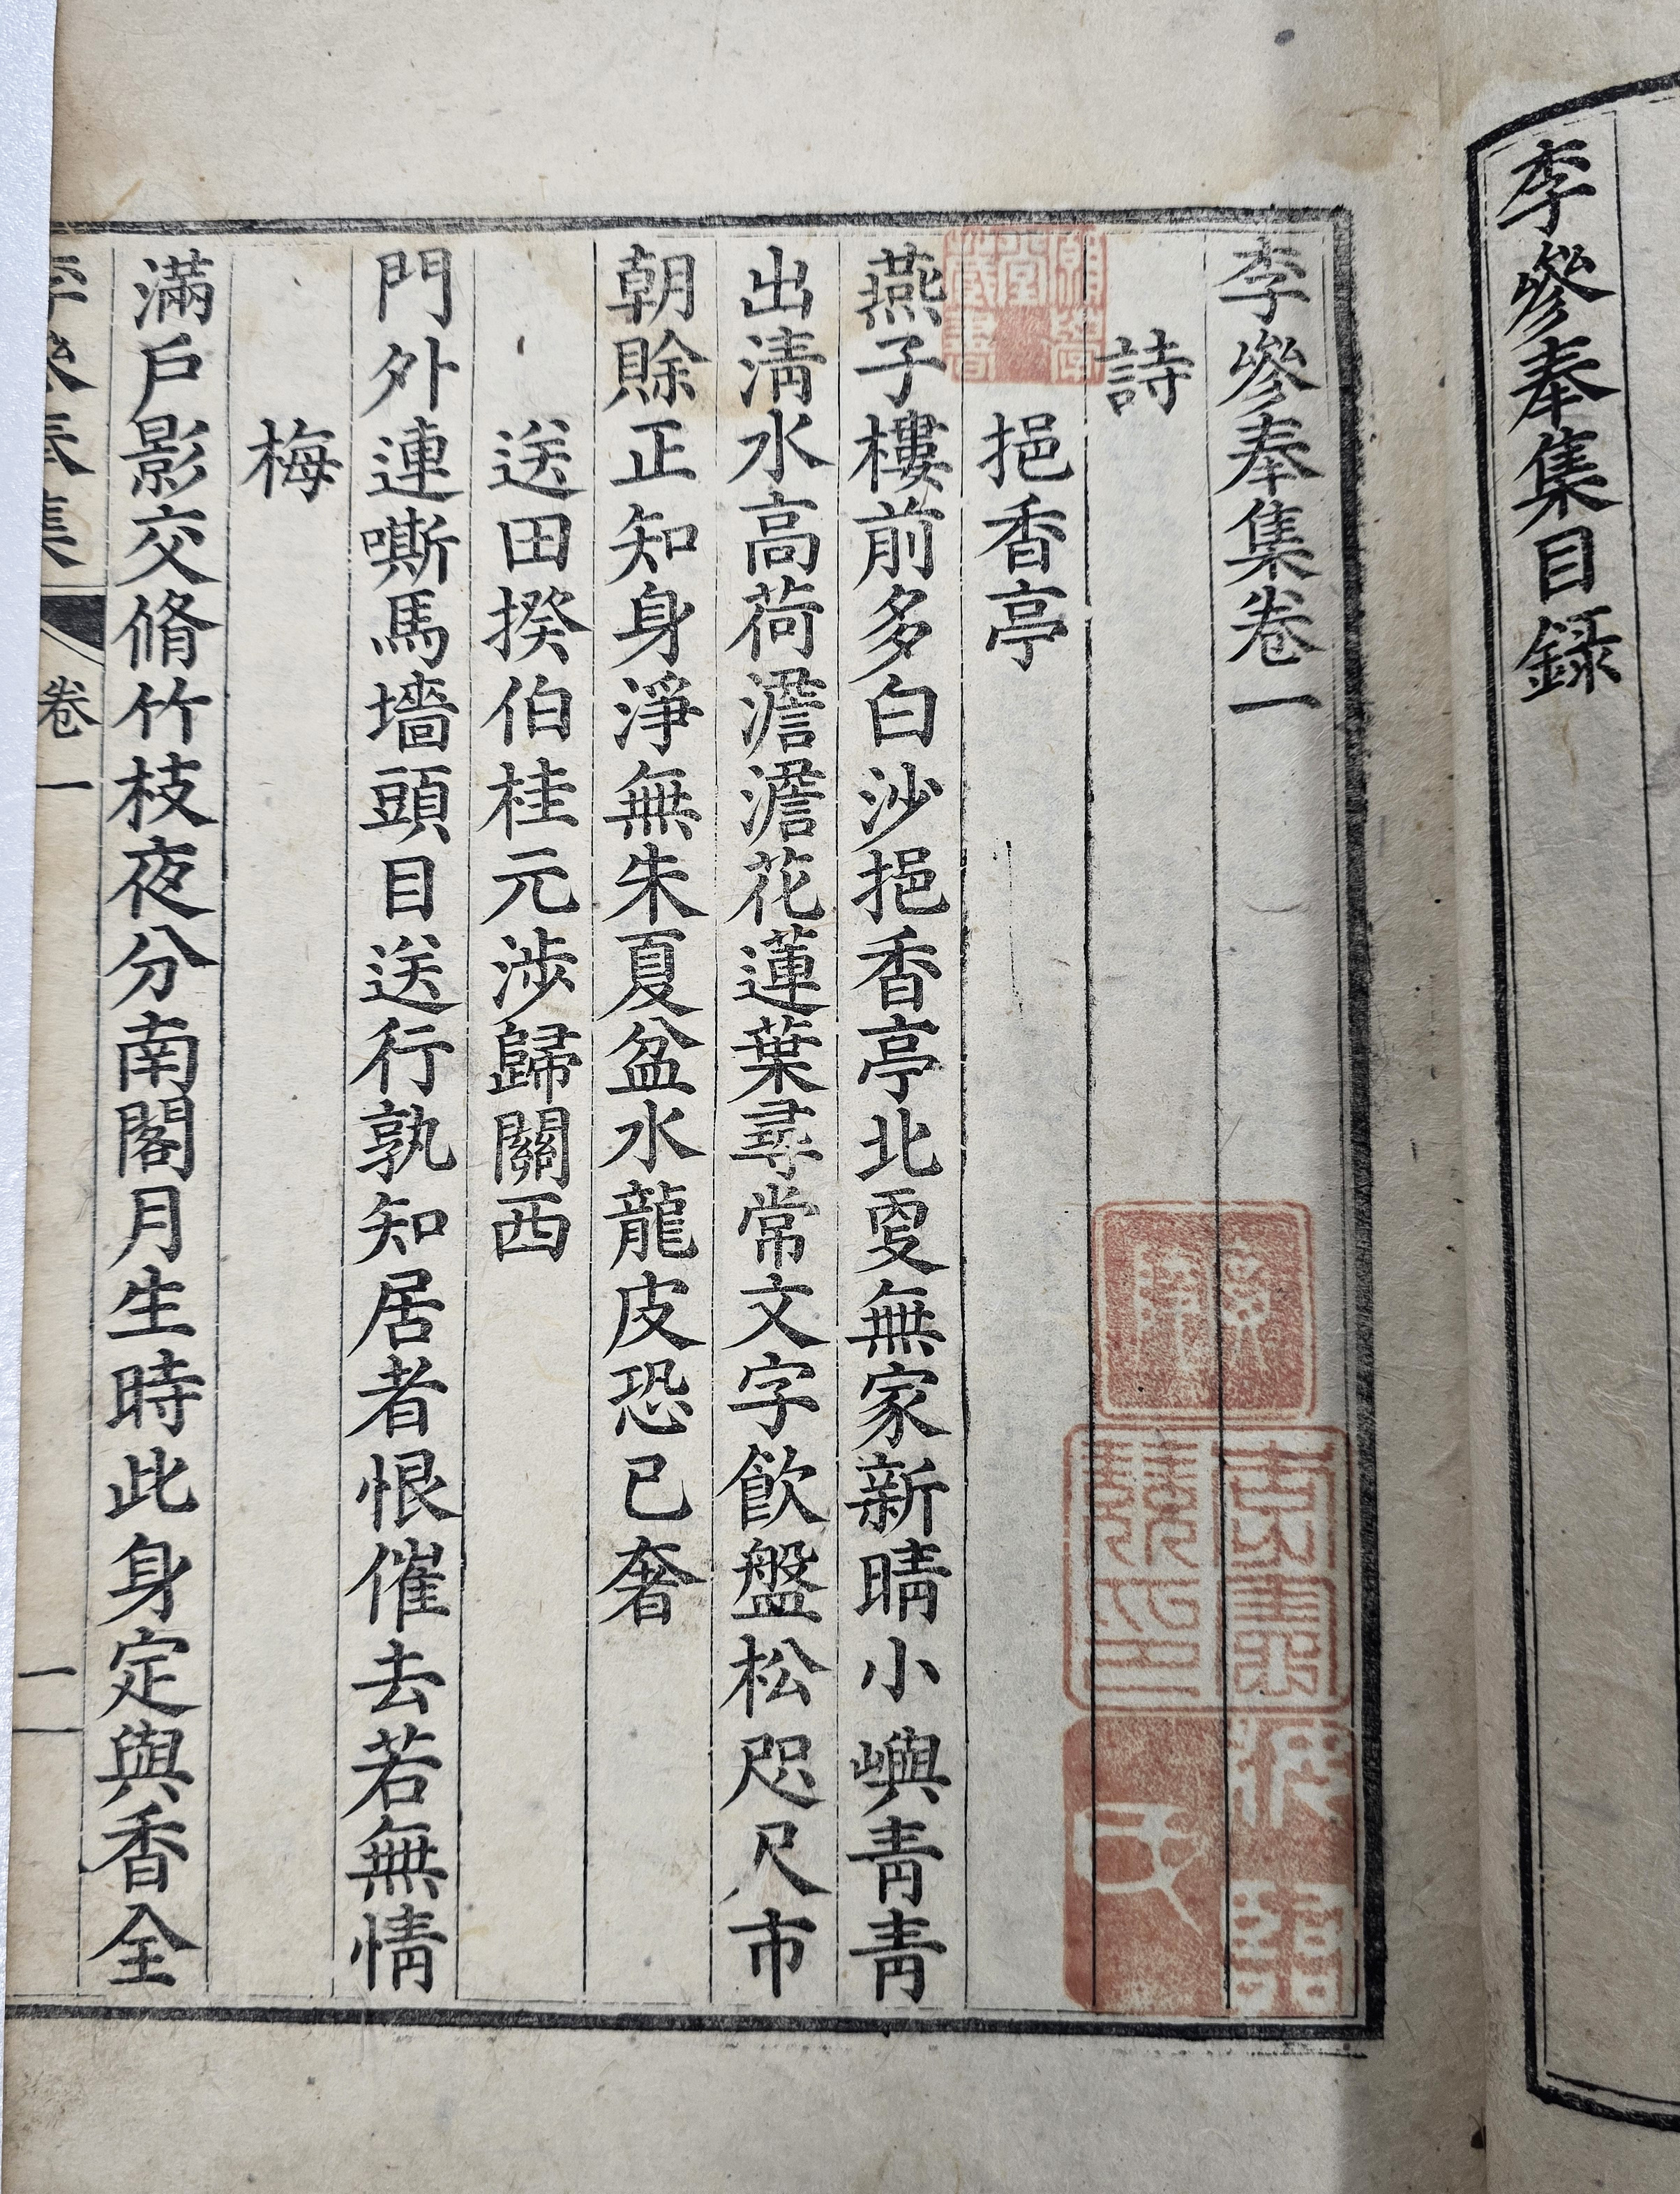 李叅奉集目録
李叅奉集卷一
詩
挹香亭
燕子樓前多白沙挹香亭北更無家新晴小嶼靑靑
出淸水高荷澹澹花蓮葉尋常文字飮盤松咫尺市
朝賖正知身淨無朱夏盆水龍皮恐已奢
送田揆伯桂元涉歸關西
門外連嘶馬墻頭目送行孰知居者恨催去若無情
梅
滿戶影交脩竹枝夜分南閣月生時此身定與香全
李叅奉集
卷一
一